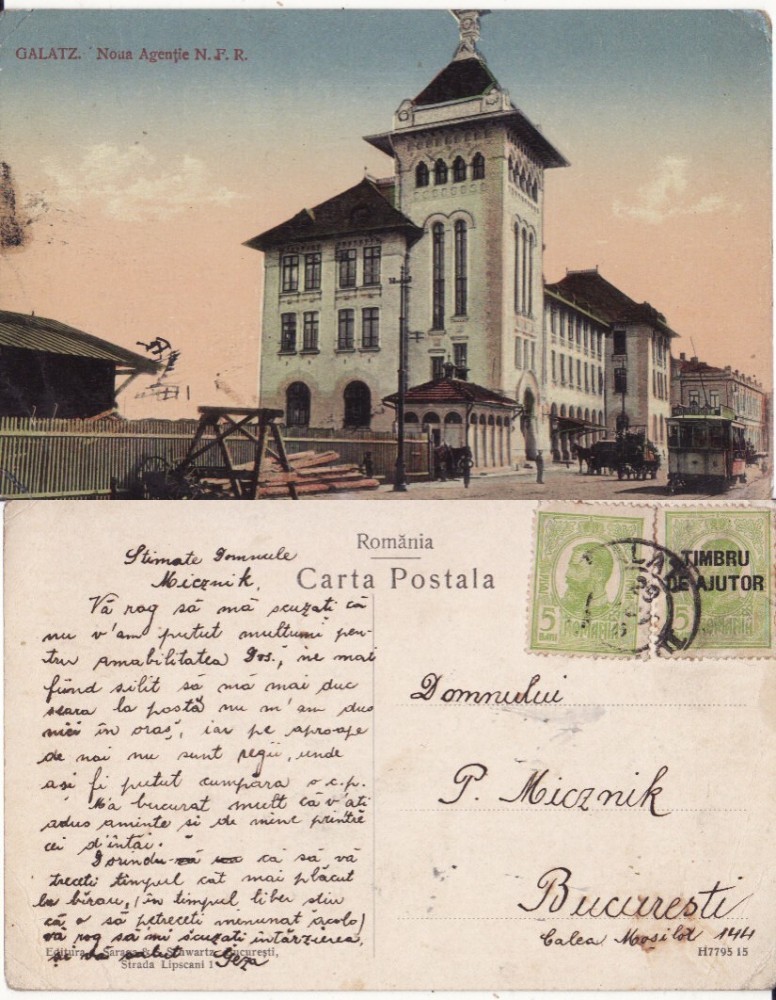 GALATZ. Noua Agenție N. F. R.
România
Carta Postala
Stimate Domnule
Micznik,
Vă rog să mă scuzați că
nu v'am putut mulțumi pen-
tru amabilitatea Dvs., ne mai
fiind silit să mă mai duc
seara la poștă nu m'am dus
nici în oraș, iar pe aproape
de noi nu sunt regii, unde
ași fi putut cumpăra o c.p.
M'a bucurat mult că v'ati
adus aminte si de mine printre
cei d'intăi.
Dorindu-vă ca să vă
treceti timpul cât mai plăcut
la birou, (în timpul liber stiu
că o să petreceti minunat acolo)
vă rog să'mi scuzati întârzierea,
și vă salut Geza
5 BANI ROMANIA
TIMBRU
DE AJUTOR
5 ROMANIA
Domnului
P. Micznik
Bucuresti
Calea Mosilor 144
Editura Saraga & Schwartz, București,
Strada Lipscani 1
H7795 15